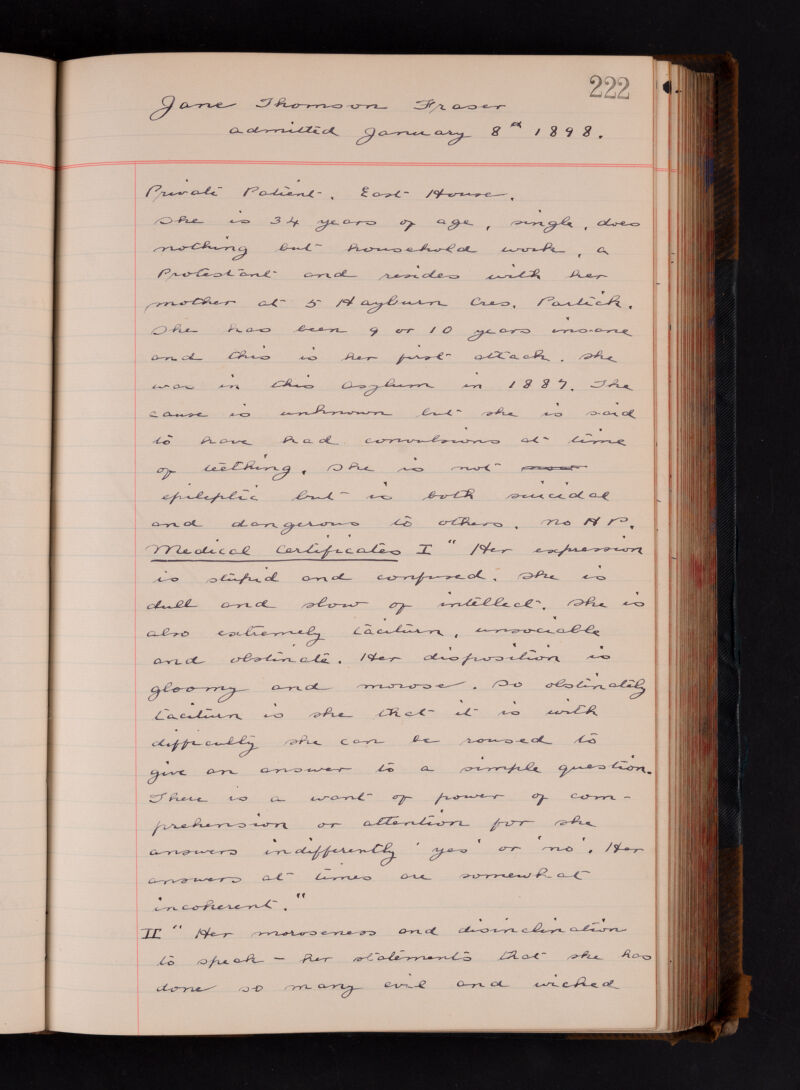 222
Jane Thomson Fraser
admitted January 8th 1898.
Private Patient. East House.
She is 34 years of age, single, does
nothing but household work, a
Protestant and resides with her
mother at 5 Hayburn Cres. Partick.
She has been 9 or 10 years insane
and this is her first attack. She
was in this asylum in 1887. The
cause is unknown but she is said
to have had convulsions at time
of teething. She is not
epileptic but is both suicidal
and dangerous to others. No H P.
Medical Certificates I " Her expression
is stupid and confused. She is
dull and slow of intellect. She is
also extremely taciturn, unsociable
and obstinate. Her disposition is
gloomy and morose. So obstinately
taciturn is she that it is with
difficulty she can be roused to
give an answer to a simple question.
There is a want of power of com-
prehension or attention for she
answers indifferently 'yes' or 'no'. Her
answers at times are somewhat
incoherent."
II " Her moroseness and disinclination
to speak - her statements that she has
done so many evil and wicked